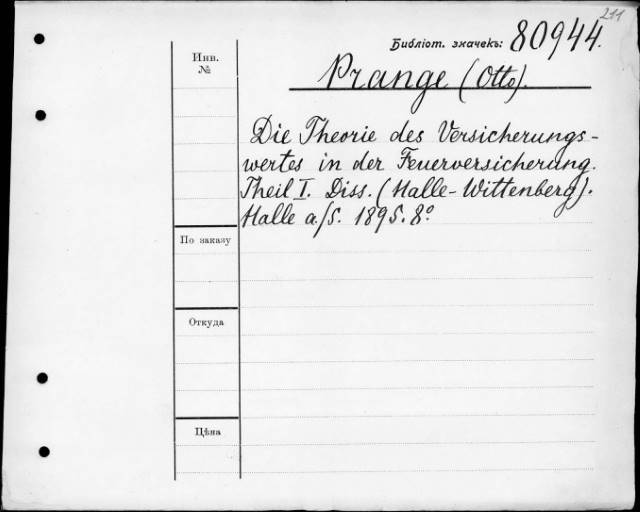 211
Библіот. значекъ: 80944.
Инв.
№
Prange (Otto).
Die Theorie des Versicherungs-
wertes in der Feuerversicherung.
Theil I. Diss. (Halle-Wittenberg).
Halle a/S. 1895. 8º
По заказу
Откуда
Цѣна